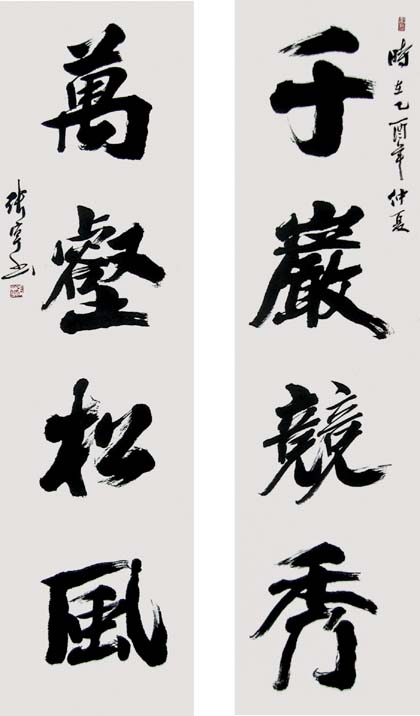 千巖競秀
時在乙酉年仲夏
萬壑松風
張宇书